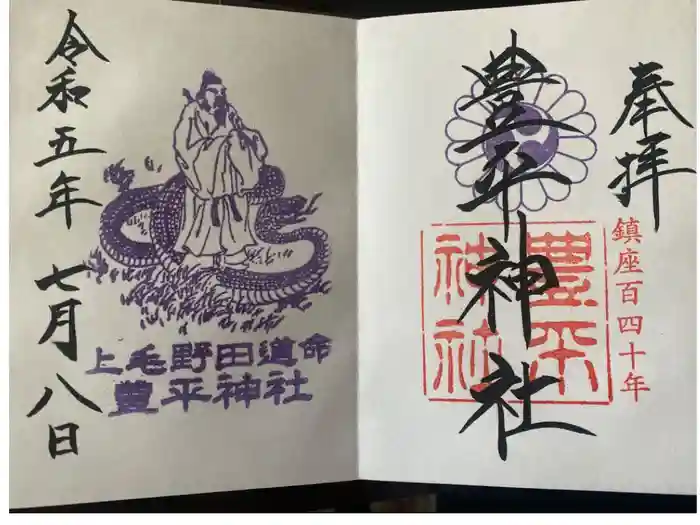 奉拝
鎮座百四十年
豊平神社
豊平
神社
上毛野田道命
豊平神社
令和五年
七月八日